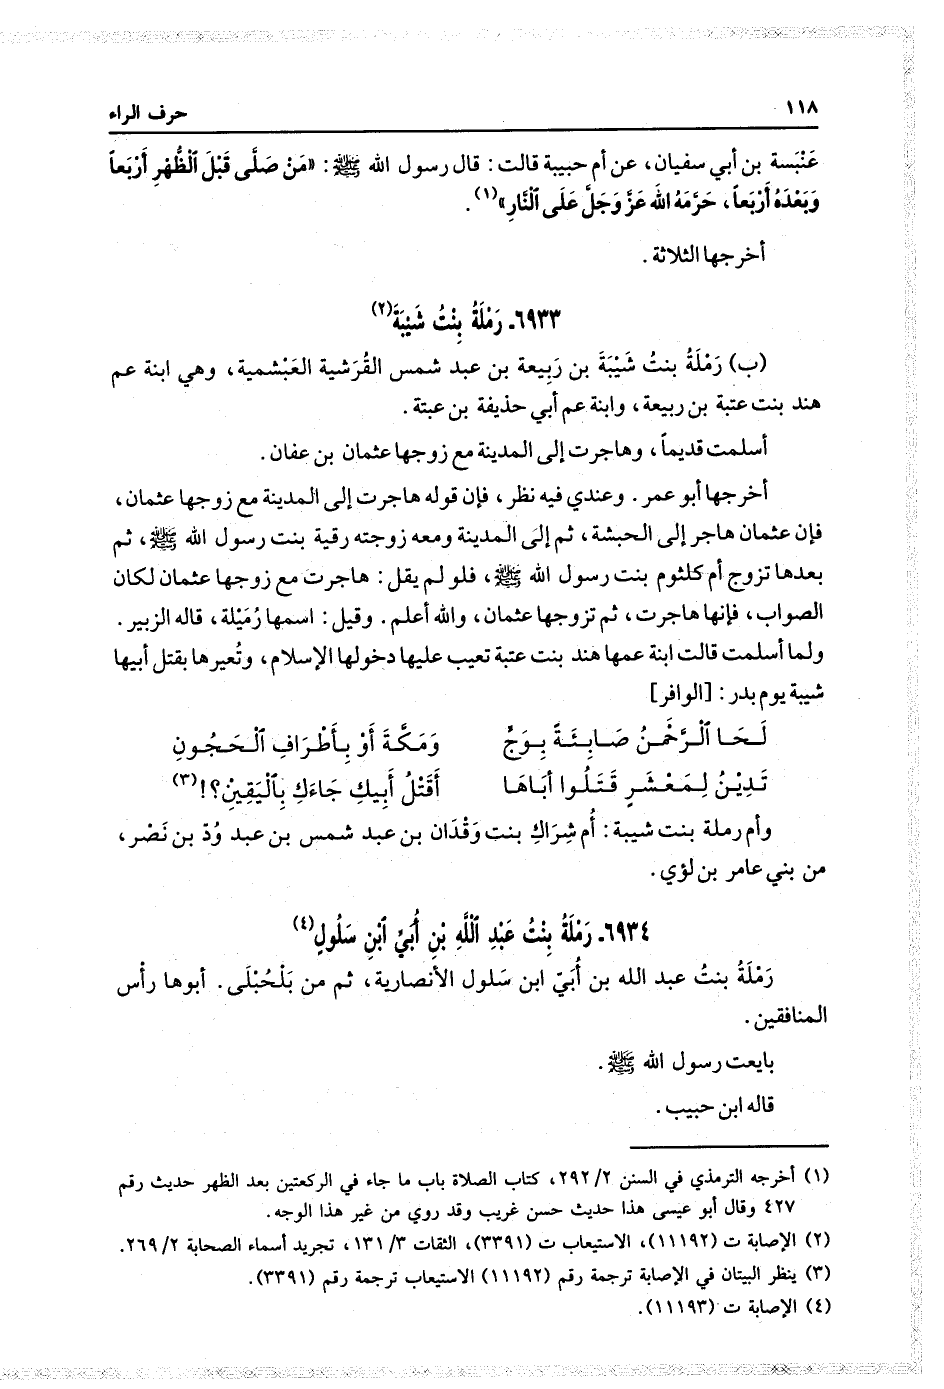 ١١٨
حرف الراء
عَنْبَسة بن أبي سفيان، عن أم حبيبة قالت: قال رسول الله ﷺ: «مَنْ صَلَّى قَبْلَ ٱلظُّهْرِ أَرْبَعاً
وَبَعْدَهُ أَرْبَعاً، حَرَّمَهُ الله عَزَّ وَجَلَّ عَلَى ٱلنَّارِ»(١).
أخرجها الثلاثة.
٦٩٣٣ـ رَمْلَةُ بِنْتُ شَيْبَةَ(٢)
(ب) رَمْلَةُ بنتُ شَيْبَةَ بن رَبِيعة بن عبد شمس القُرَشية العَبْشمية، وهي ابنة عم
هند بنت عتبة بن ربيعة، وابنة عم أبي حذيفة بن عبتة.
أسلمت قديماً، وهاجرت إلى المدينة مع زوجها عثمان بن عفان.
أخرجها أبو عمر. وعندي فيه نظر، فإن قوله هاجرت إلى المدينة مع زوجها عثمان،
فإن عثمان هاجر إلى الحبشة، ثم إلى المدينة ومعه زوجته رقية بنت رسول الله ﷺ، ثم
بعدها تزوج أم كلثوم بنت رسول الله ﷺ، فلو لم يقل: هاجرت مع زوجها عثمان لكان
الصواب، فإنها هاجرت، ثم تزوجها عثمان، والله أعلم. وقيل: اسمها رُمَيْلة، قاله الزبير.
ولما أسلمت قالت ابنة عمها هند بنت عتبة تعيب عليها دخولها الإسلام، وتُعيرها بقتل أبيها
شيبة يوم بدر: [الوافر]
لَحَا ٱلرَّحْمَنُ صَابِئَةً بِوَجٍّ وَمَكَّةَ أَوْ بِأَطْرَافِ ٱلْحَجُونِ
تَدِيْنُ لِمَعْشَرٍ قَتَلُوا أَبَاهَا أَقَتْلُ أَبِيكِ جَاءَكِ بِٱلْيَقِينْ؟!(٣)
وأم رملة بنت شيبة: أُم شِرَاكِ بنت وَقْدَان بن عبد شمس بن عبد وُدّ بن نَصْر،
من بني عامر بن لؤي.
٦٩٣٤ـ رَمْلَةُ بِنْتُ عَبْدِ ٱللَّهِ بْنِ أُبَيِّ ٱبْنِ سَلُولٍ(٤)
رَمْلَةُ بنتُ عبد الله بن أُبَيّ ابن سَلول الأنصارية، ثم من بَلْحُبْلَى. أبوها رأْس
المنافقين.
بايعت رسول الله ﷺ.
قاله ابن حبيب.
(١) أخرجه الترمذي في السنن ٢/ ٢٩٢، كتاب الصلاة باب ما جاء في الركعتين بعد الظهر حديث رقم
٤٢٧ وقال أبو عيسى هذا حديث حسن غريب وقد روي من غير هذا الوجه.
(٢) الإصابة ت (١١١٩٢)، الاستيعاب ت (٣٣٩١)، الثقات ٣/ ١٣١، تجريد أسماء الصحابة ٢/ ٢٦٩.
(٣) ينظر البيتان في الإصابة ترجمة رقم (١١١٩٢) الاستيعاب ترجمة رقم (٣٣٩١).
(٤) الإصابة ت (١١١٩٣).